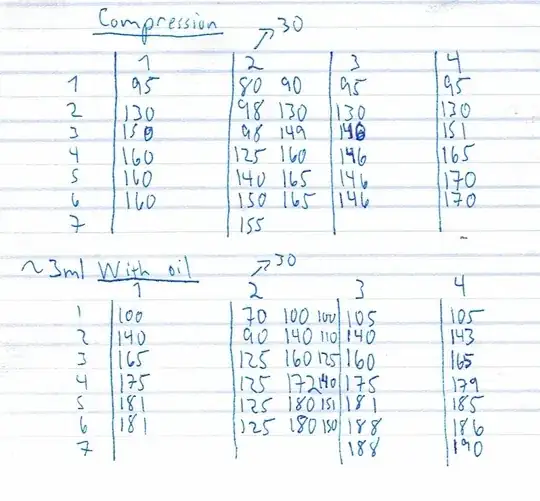 Compression
↗30
1 2 3 4
1 95 80 90 95 95
2 130 98 130 130 130
3 150 98 149 146 151
4 160 125 160 146 165
5 160 140 165 146 170
6 160 150 165 146 170
7 155
~3ml With oil
↗30
1 2 3 4
1 100 70 100 100 105 105
2 140 90 140 110 140 143
3 165 125 160 125 160 165
4 175 125 172 140 175 179
5 181 125 180 151 181 185
6 181 125 180 150 188 186
7 188 190